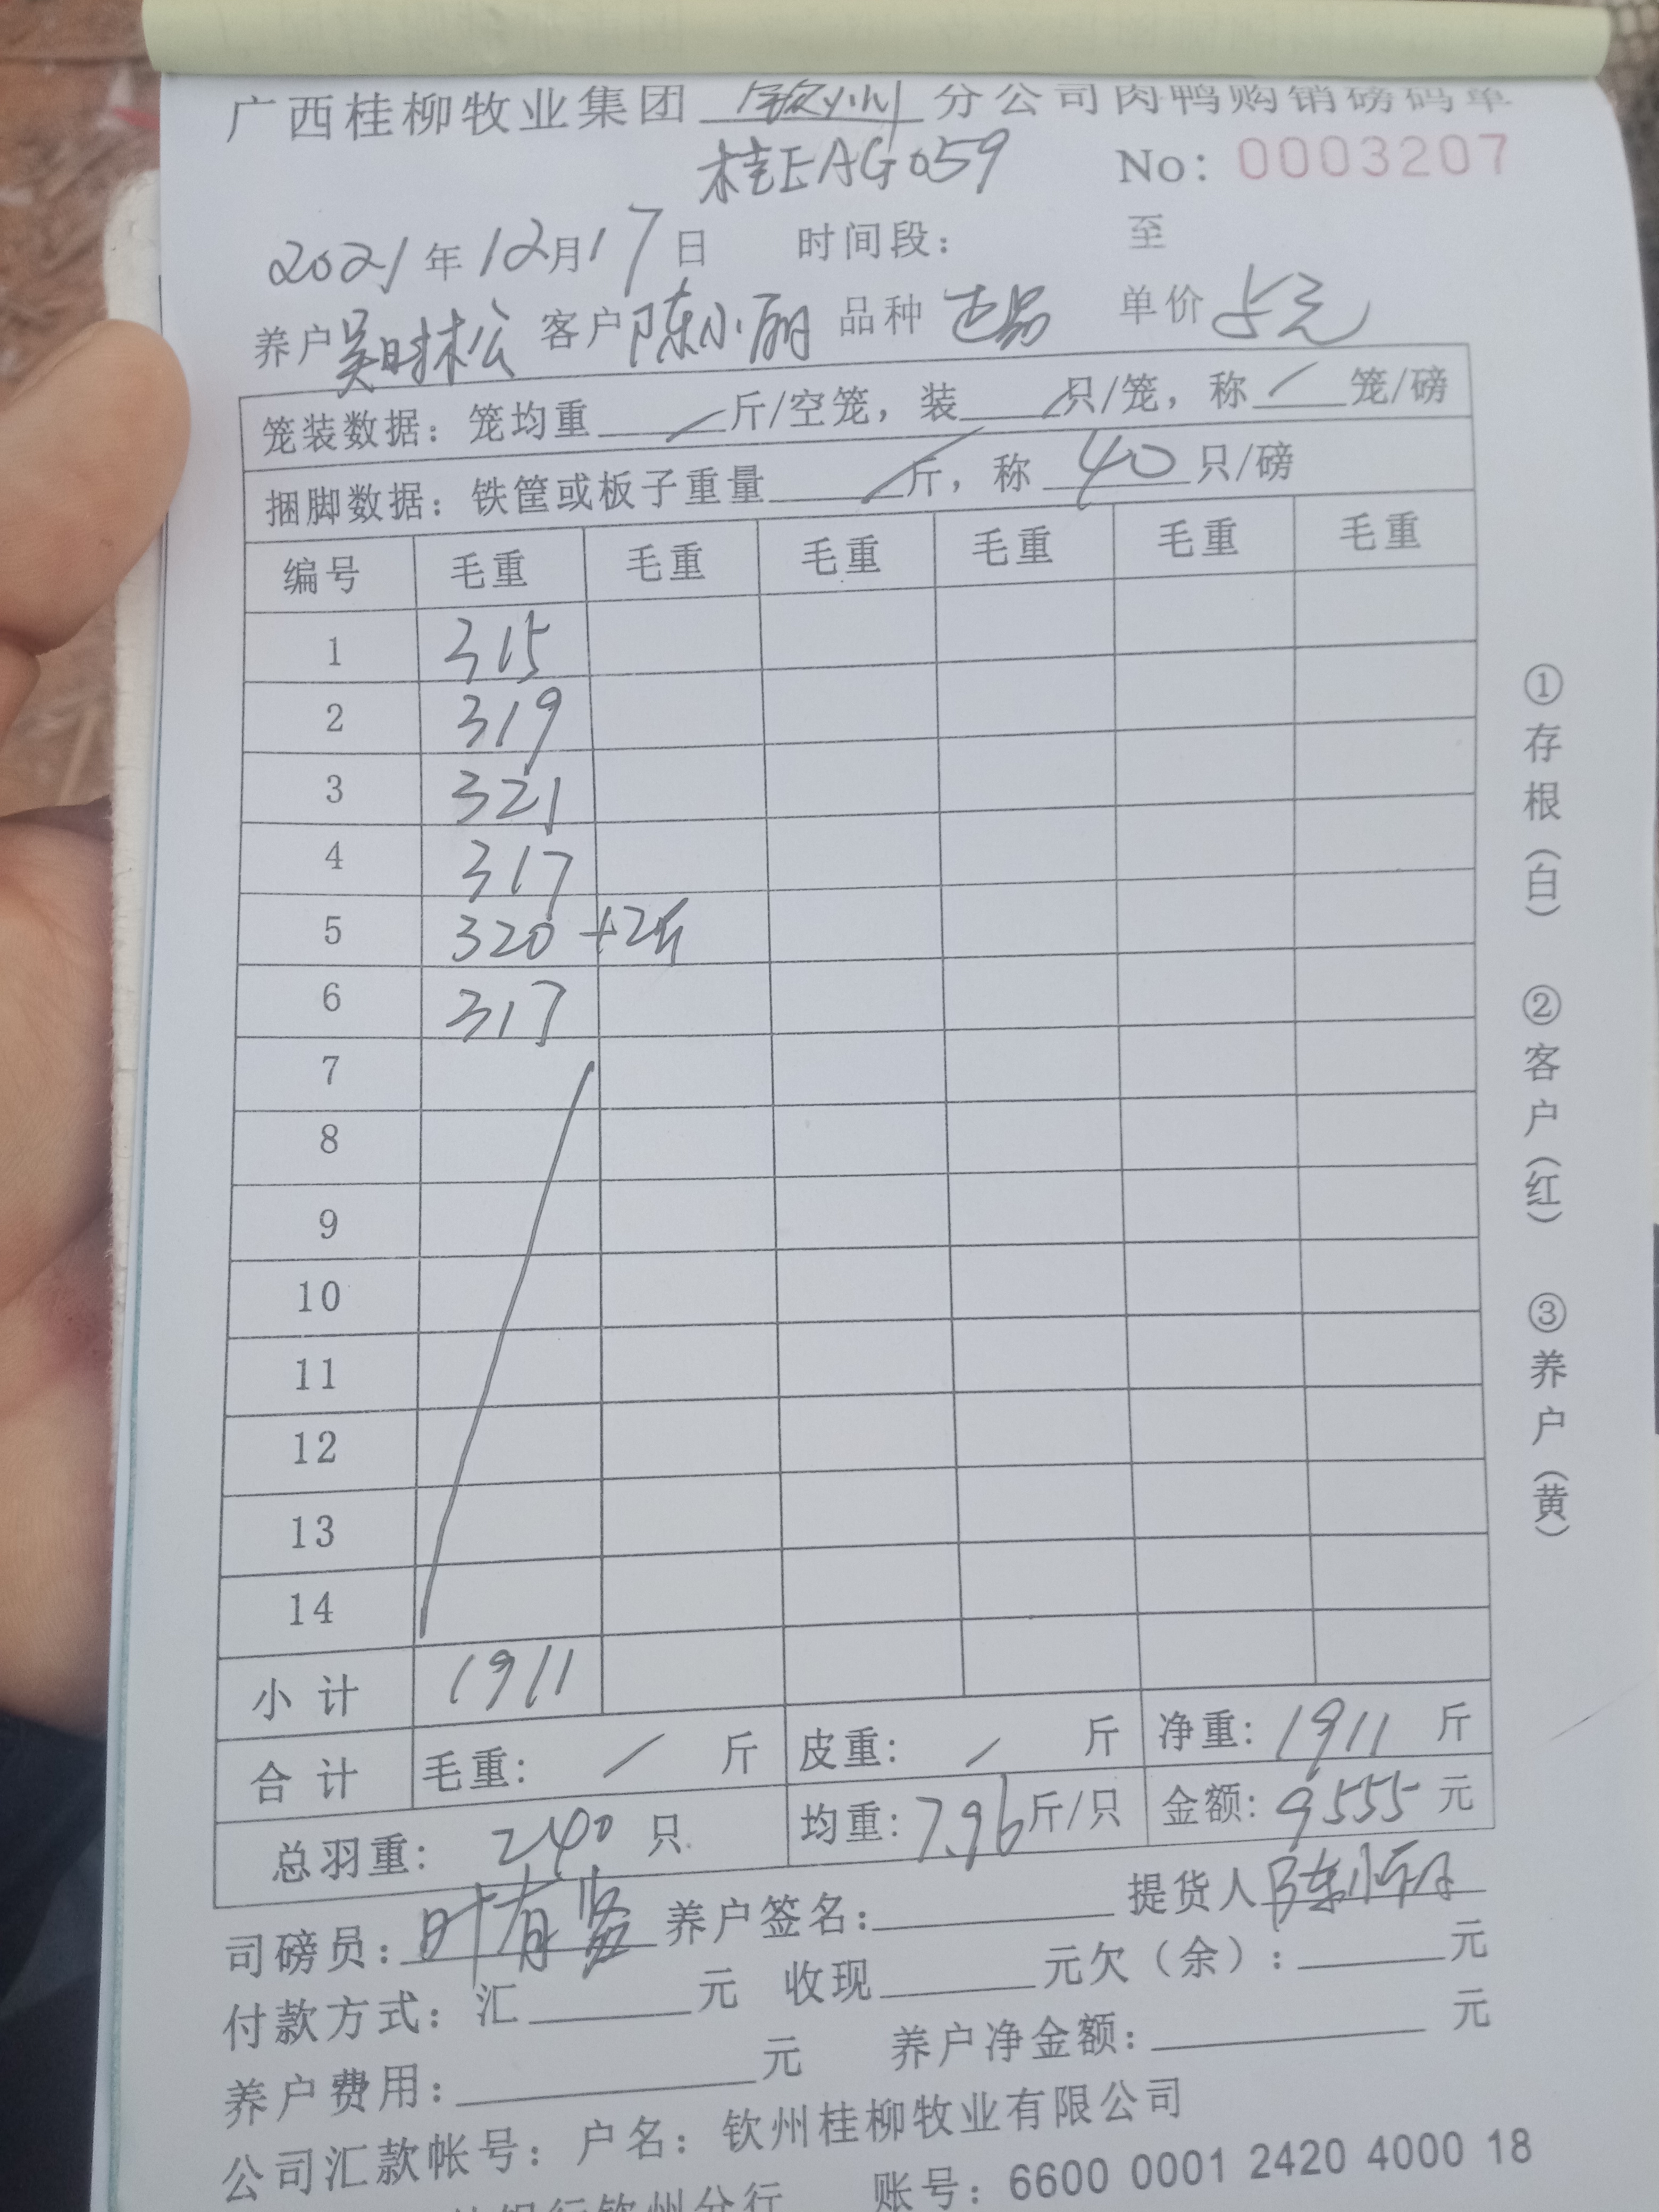 广西桂柳牧业集团 钦州 分公司肉鸭购销磅码单
桂EAG059 No: 0003207
2021年12月17日 时间段: 至
养户 吴时松 客户 陈小丽 品种 正品 单价 5元
笼装数据: 笼均重 / 斤/空笼, 装 / 只/笼, 称 / 笼/磅
捆脚数据: 铁筐或板子重量 / 斤, 称 40 只/磅
编号 毛重 毛重 毛重 毛重 毛重 毛重
1 315
2 319
3 321
4 317
5 320 +2斤
6 317
7
8
9
10
11
12
13
14
小计 1911
合计 毛重: / 斤 皮重: / 斤 净重: 1911 斤
总羽重: 240 只 均重: 7.96 斤/只 金额: 9555 元
司磅员: 叶有 养户签名: 提货人 陈小丽
付款方式: 汇 元 收现 元欠(余): 元
养户费用: 元 养户净金额: 元
公司汇款帐号: 户名: 钦州桂柳牧业有限公司
银行钦州分行 账号: 6600 0001 2420 4000 18
①存根(白) ②客户(红) ③养户(黄)